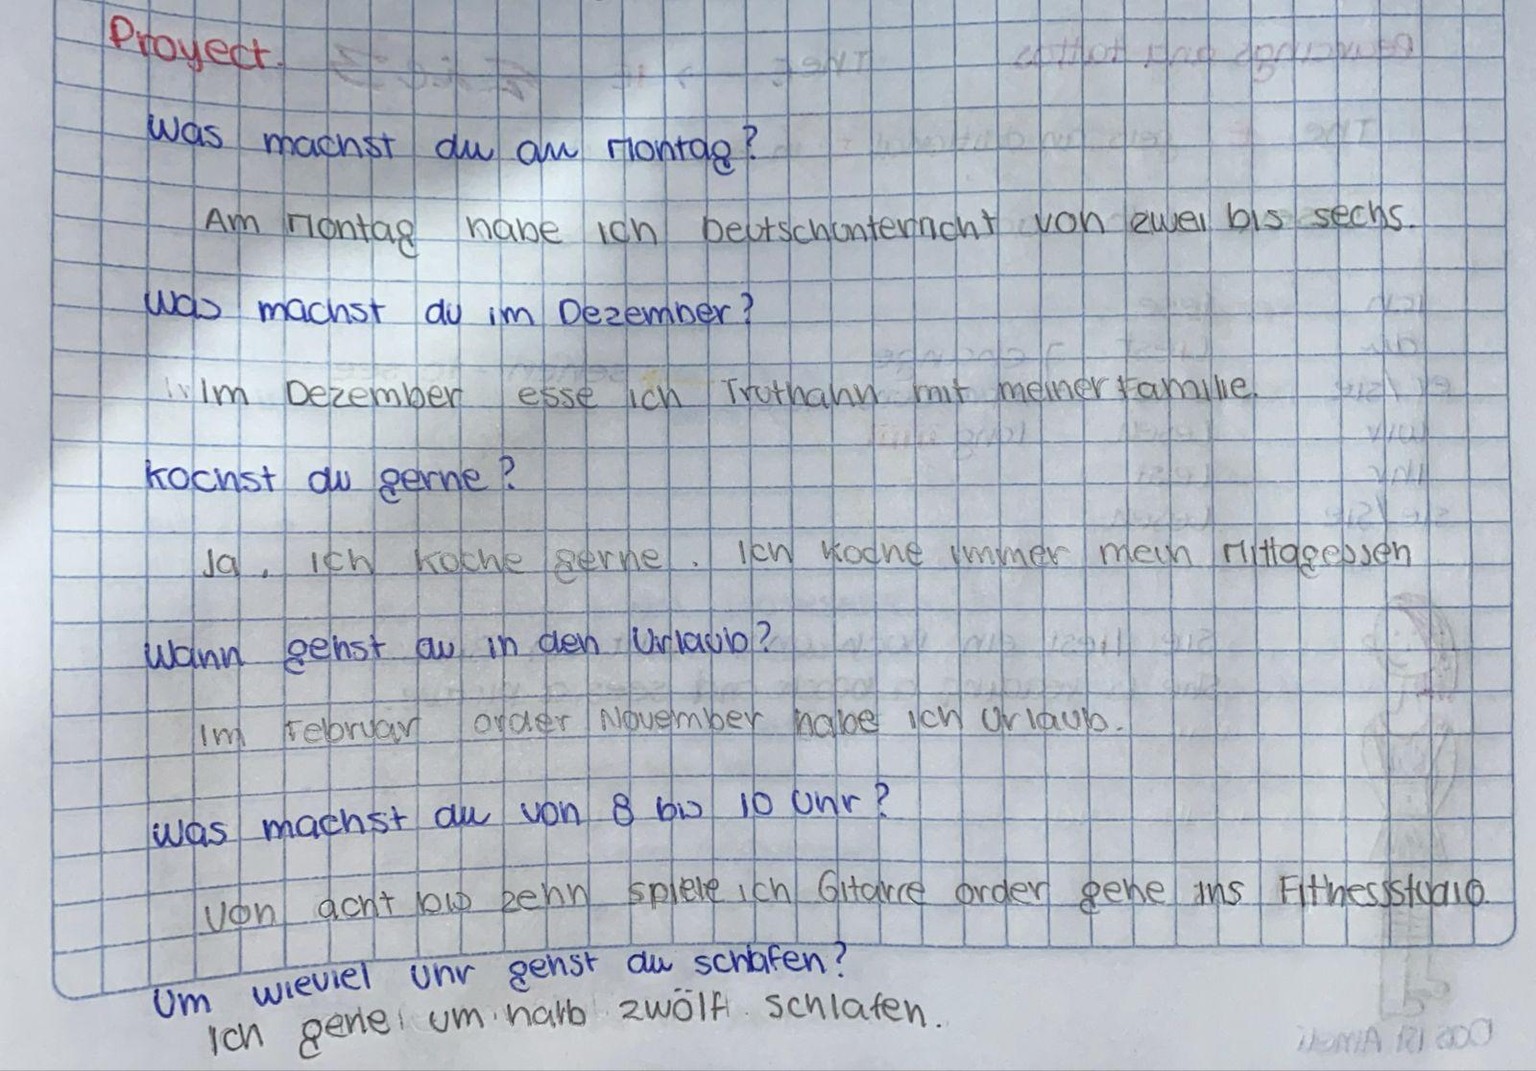 Proyect.
Was machst du am Montag?
Am Montag habe ich Deutschunterricht von zwei bis sechs.
Was machst du im Dezember?
Im Dezember esse ich Truthahn mit meiner Familie.
Kochst du gerne?
Ja, ich koche gerne. Ich koche immer mein Mittagessen
Wann gehst du in den Urlaub?
Im Februar order November habe ich Urlaub.
Was machst du von 8 bis 10 Uhr?
Von acht bis zehn spiele ich Gitarre order gehe ins Fitnessstudio.
Um wieviel Uhr gehst du schlafen?
Ich gehe um halb zwölf schlafen.